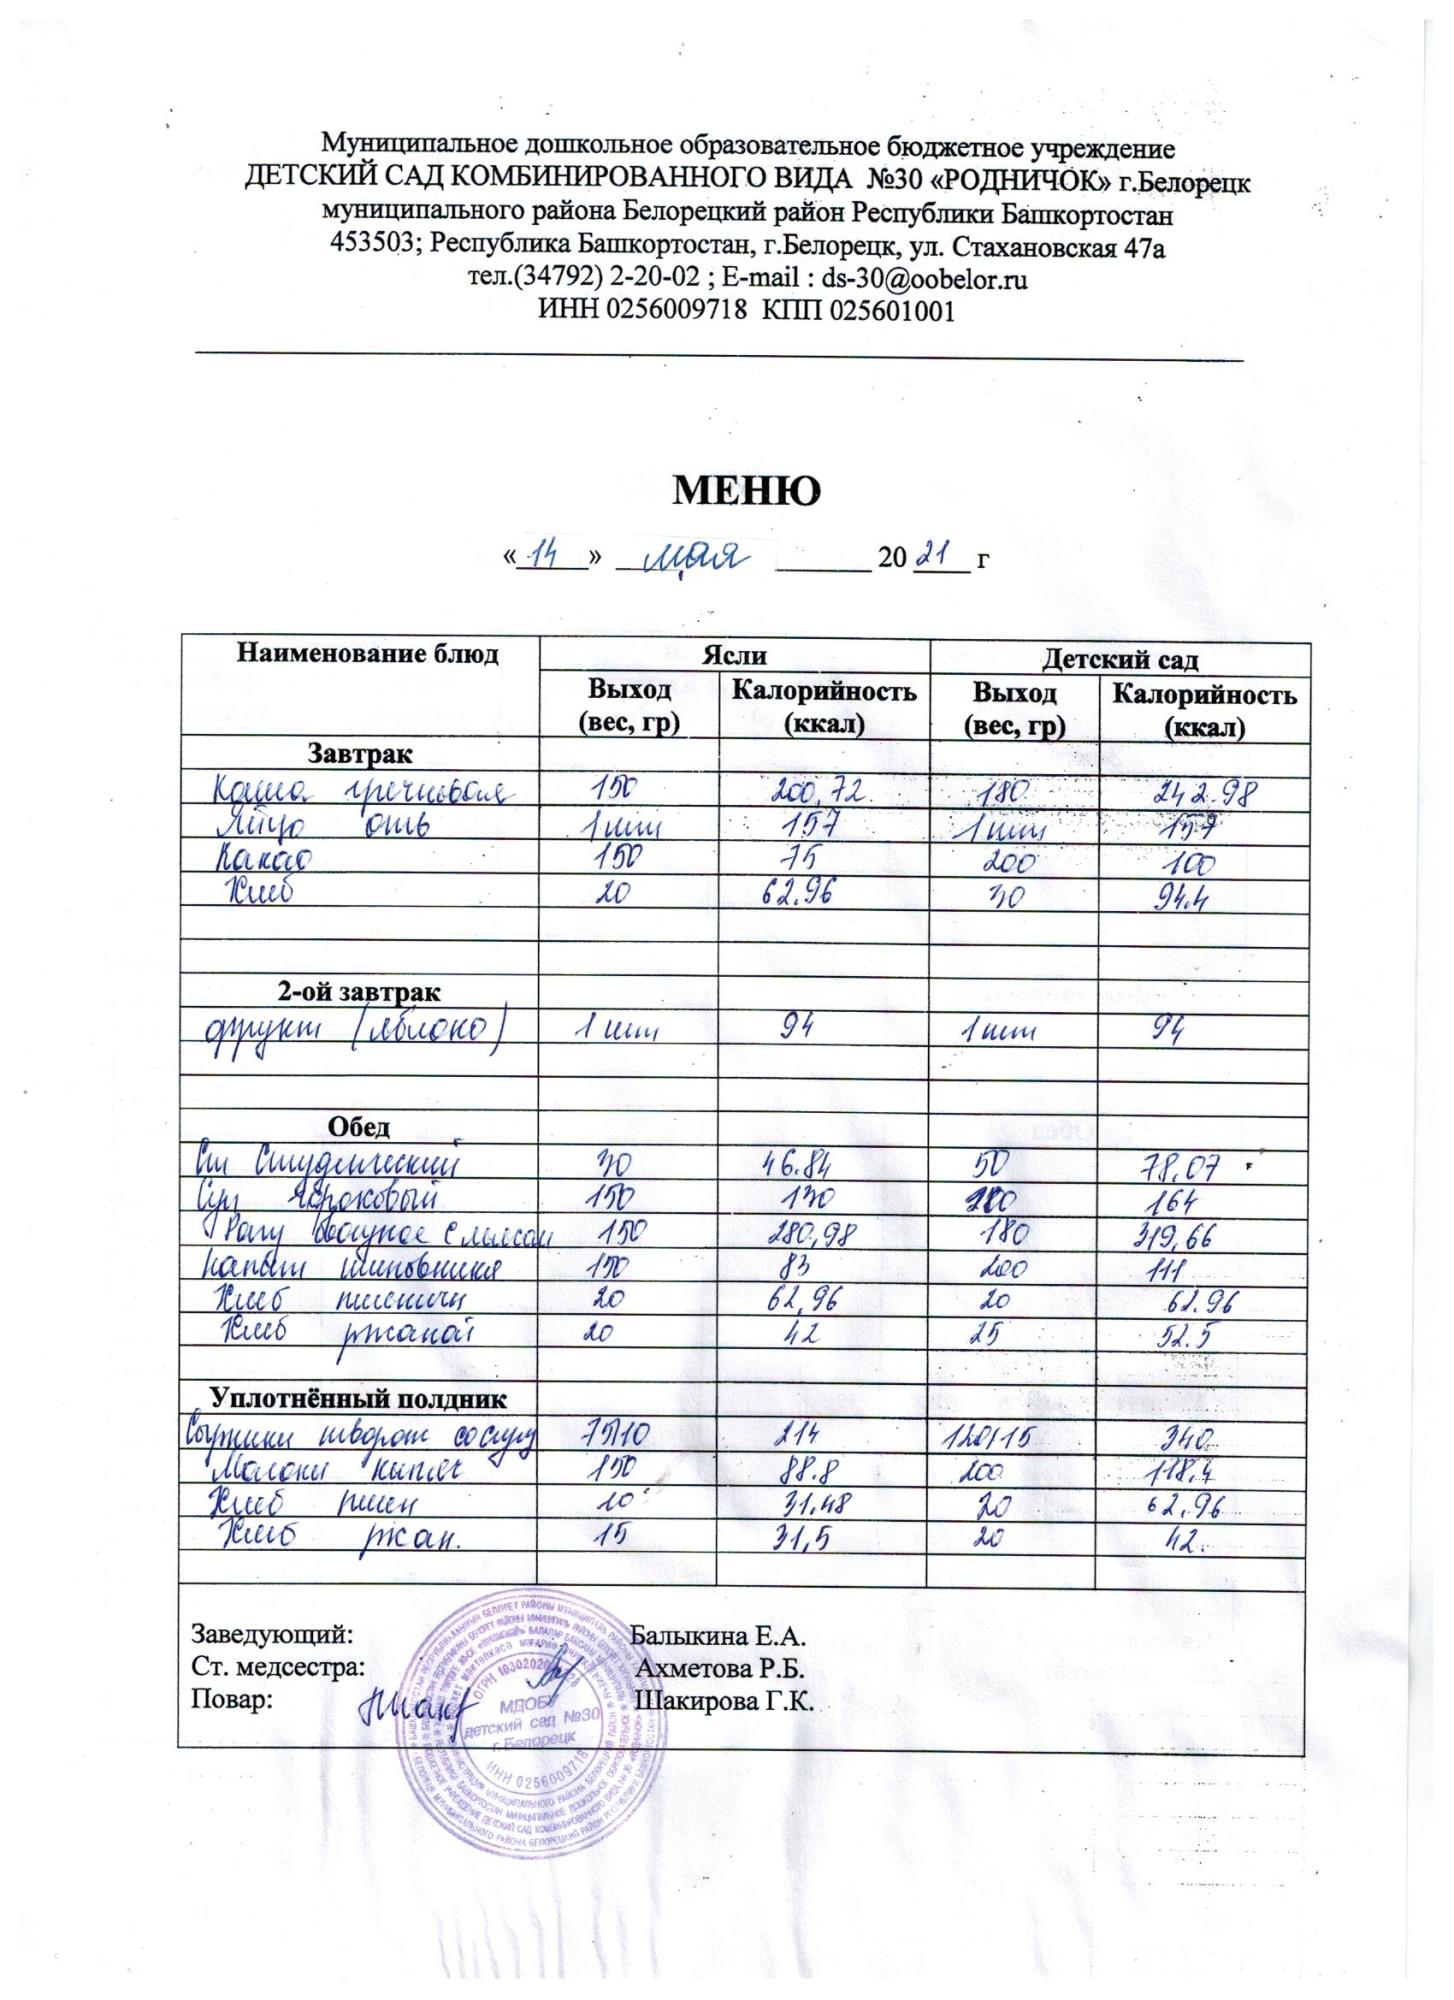 Муниципальное дошкольное образовательное бюджетное учреждение
ДЕТСКИЙ САД КОМБИНИРОВАННОГО ВИДА №30 «РОДНИЧОК» г.Белорецк
муниципального района Белорецкий район Республики Башкортостан
453503; Республика Башкортостан, г.Белорецк, ул. Стахановская 47а
тел.(34792) 2-20-02 ; E-mail : ds-30@oobelor.ru
ИНН 0256009718 КПП 025601001
МЕНЮ
«14» мая 20 21 г
Наименование блюд Ясли Детский сад
Выход (вес, гр) Калорийность (ккал) Выход (вес, гр) Калорийность (ккал)
Завтрак
Каша гречневая 150 200,72 180 242.98
Яйцо отв 1 шт 157 1 шт 157
Какао 150 75 200 100
Хлеб 20 62.96 30 94.4
2-ой завтрак
фрукт (яблоко) 1 шт 94 1 шт 94
Обед
Сп Студенческий 30 46.84 50 78,07
Суп 150 130 164
Рагу овощное с мясом 150 280,98 180 319,66
напит шиповника 150 83 200 111
Хлеб пшеничн 20 62,96 20 62.96
Хлеб ржаной 20 42 25 52.5
Уплотнённый полдник
Сырники творож со сгущ 75/10 214 120/15 340
Молоко кипяч 150 88.8 200 118.4
Хлеб пшен 10 31,48 20 62,96
Хлеб ржан. 15 31,5 20 42.
Заведующий: Балыкина Е.А.
Ст. медсестра: Ахметова Р.Б.
Повар: Шакирова Г.К.
МДОБУ
детский сад №30
г.Белорецк
ИНН 0256009718